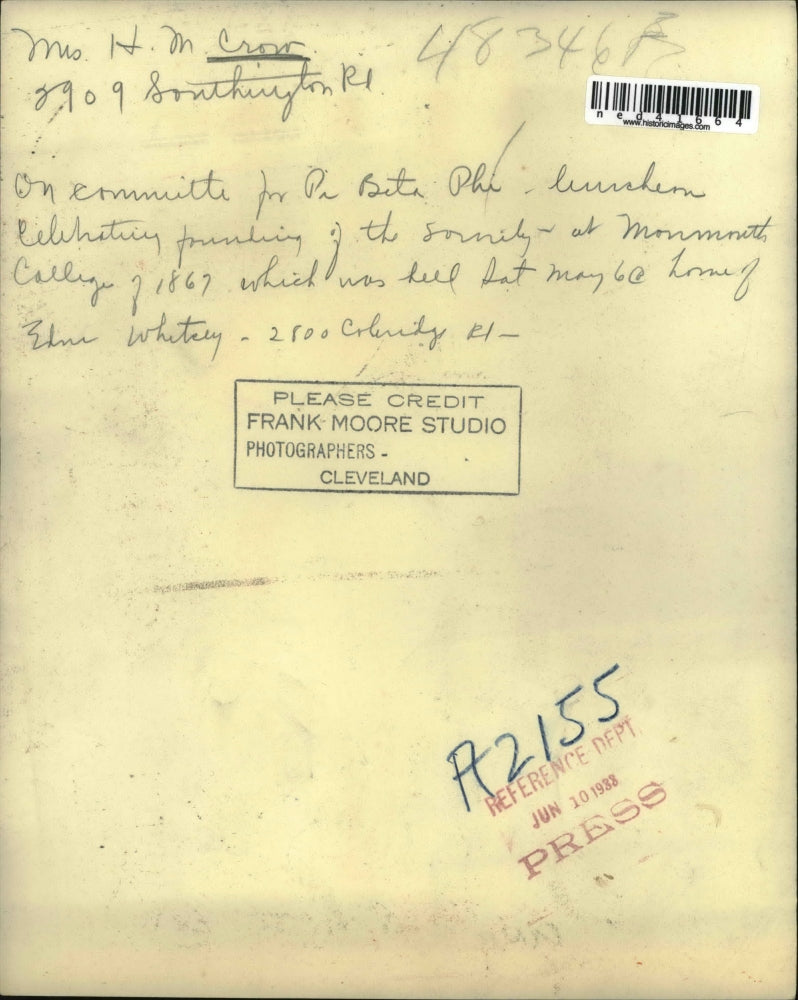 Mrs. H. M. Crow
2909 Southington Rd.
48346B
ned41664
www.historicimages.com
On committe for Pi Beta Phi - luncheon
celebrating founding of the sorority - at Monmouth
College of 1867 which was held Sat May 6 @ home of
Edna Whitsey - 2800 Coleridge Rd -
PLEASE CREDIT
FRANK MOORE STUDIO
PHOTOGRAPHERS -
CLEVELAND
A2155
REFERENCE DEPT.
JUN 10 1938
PRESS